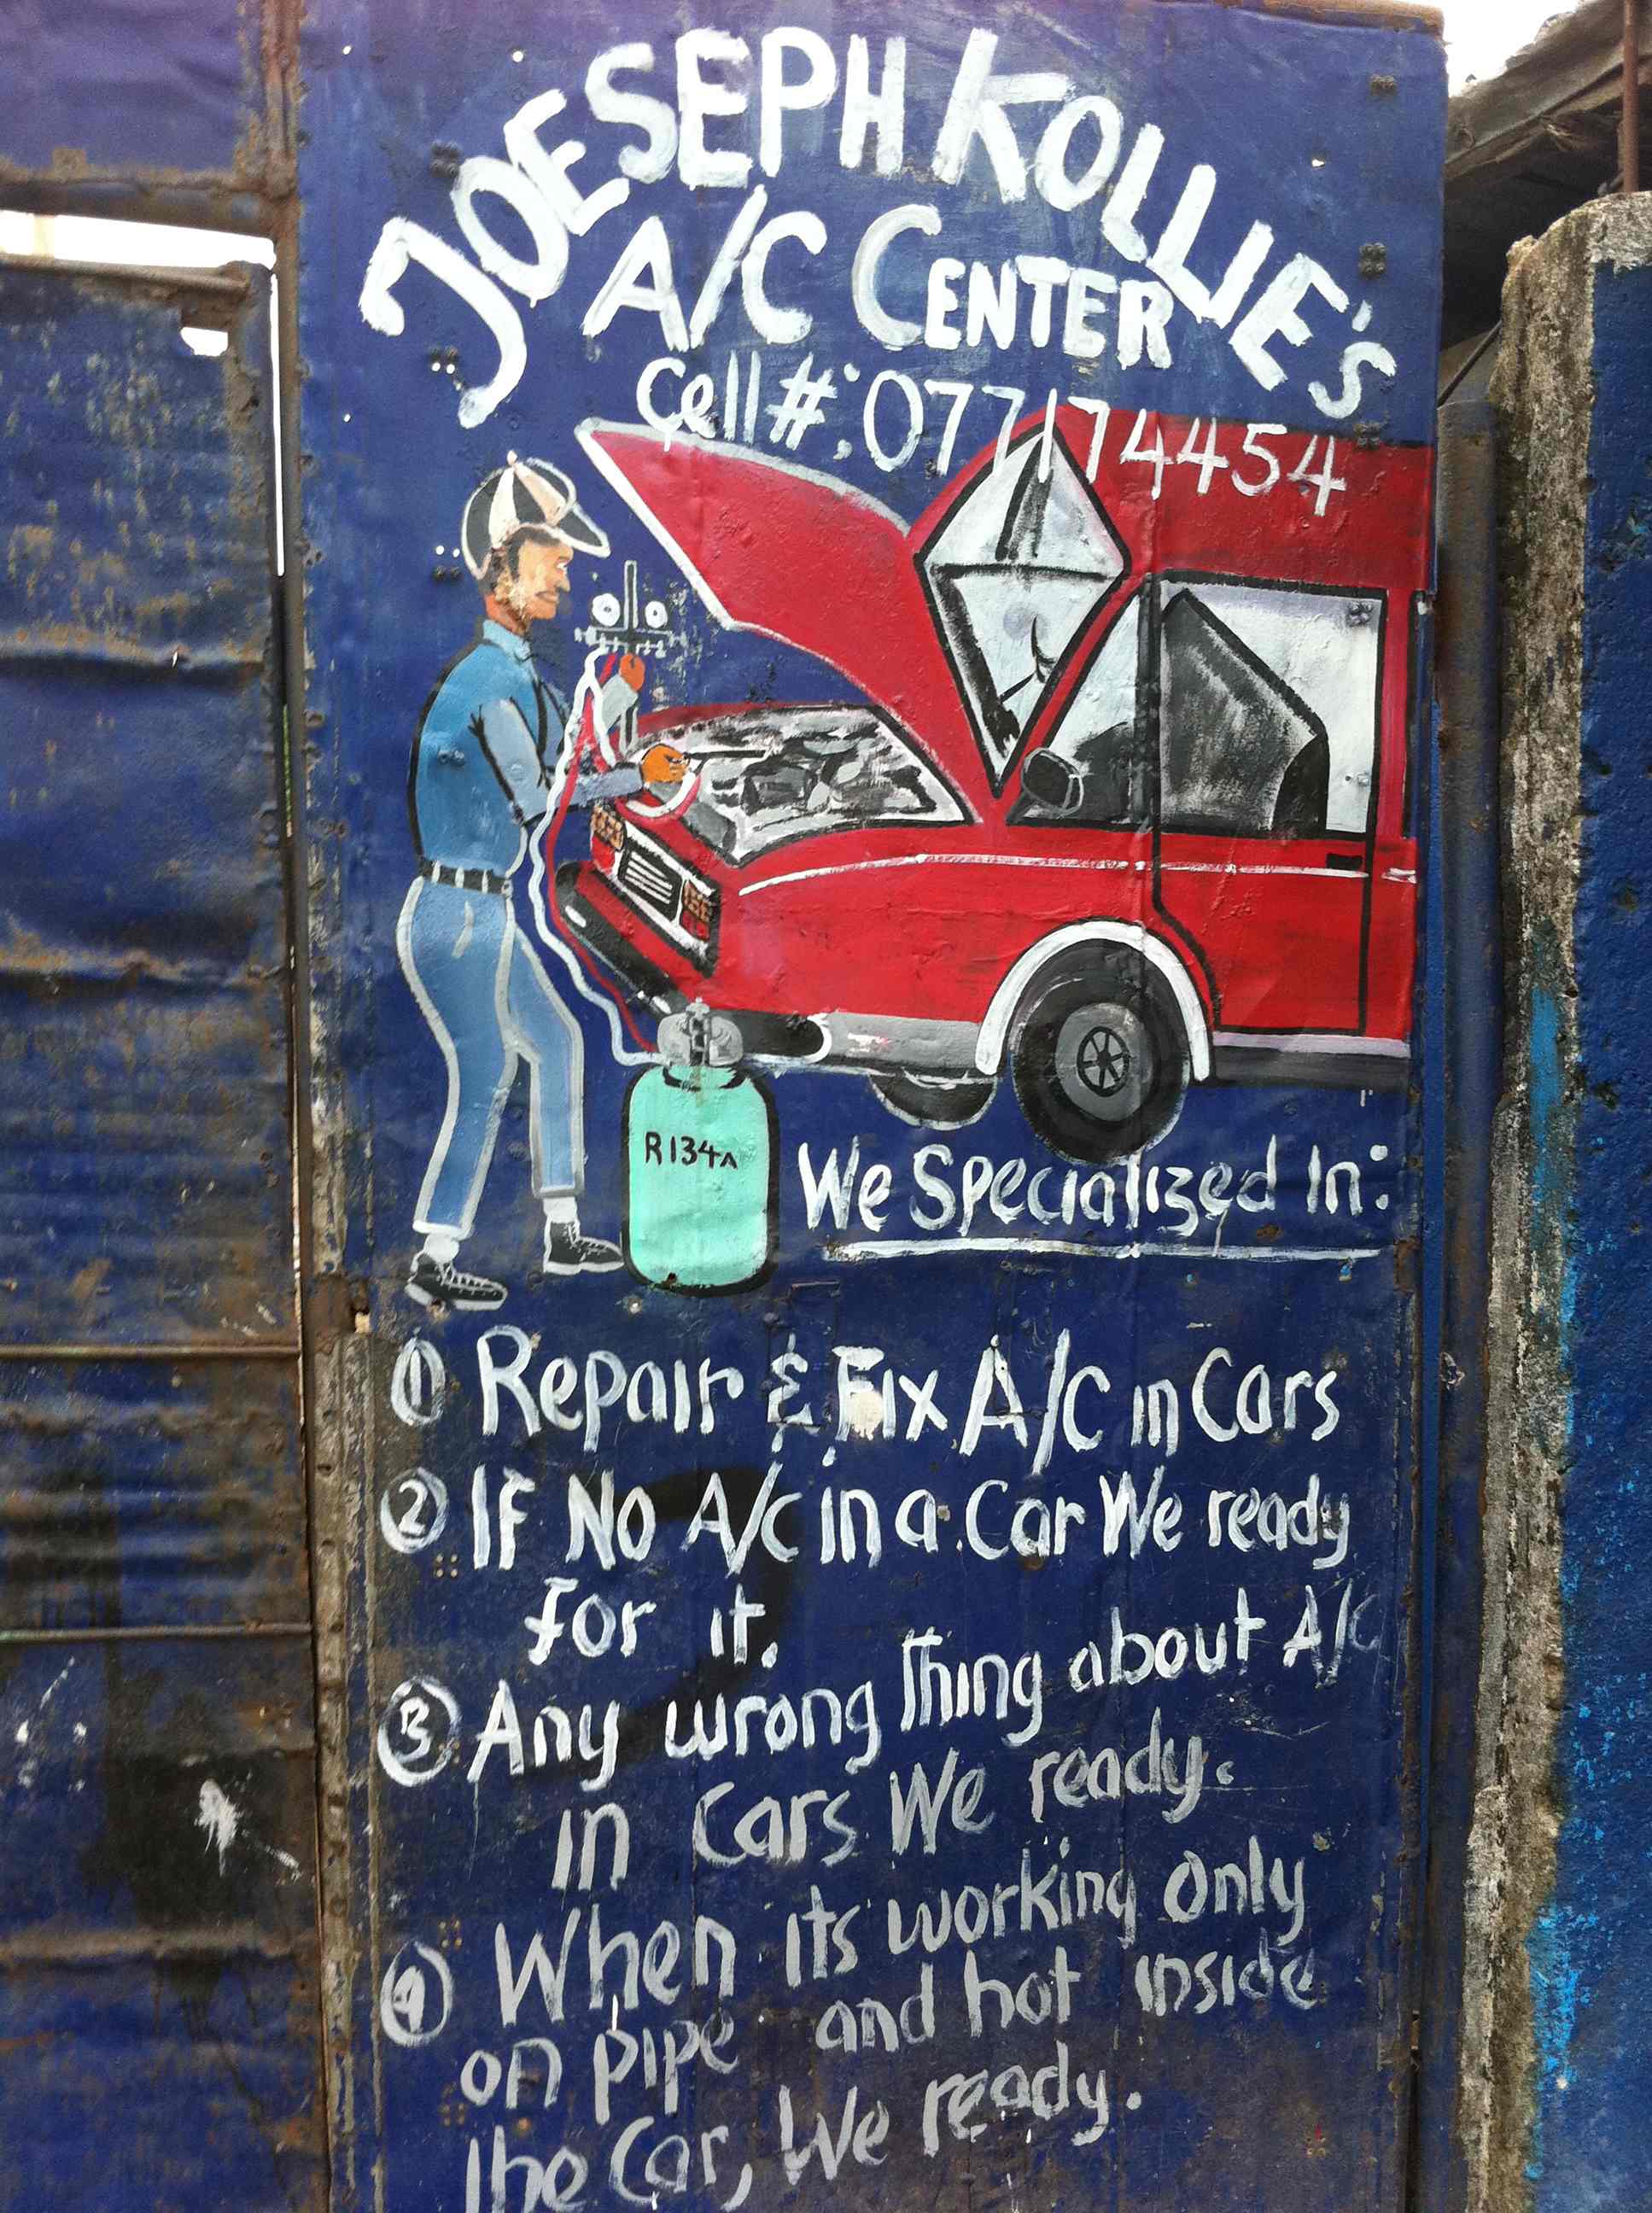 JOESEPH KOLLIE'S
A/C CENTER
Cell#: 077174454
R134A
We Specialized In:
1 Repair & Fix A/C in Cars
2 If No A/c in a Car We ready
for it.
3 Any wrong thing about A/C
in Cars We ready.
4 When its working only
on pipe and hot inside
the Car, We ready.